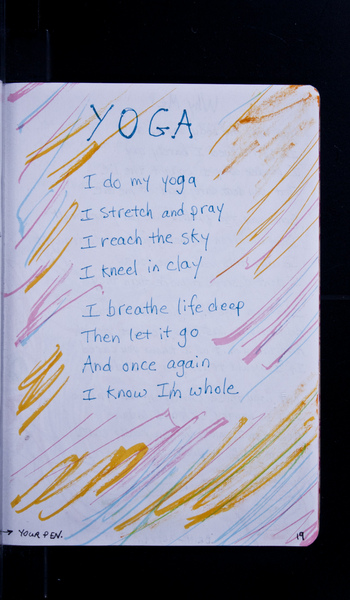 YOGA
I do my yoga
I stretch and pray
I reach the sky
I kneel in clay
I breathe life deep
Then let it go
And once again
I know I'm whole
→ YOUR PEN.
19